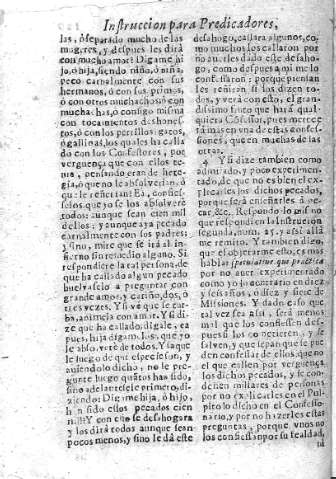 Instruccion para Predicadores,
las, ò separado mucho de las
mugeres, y despues les dirà
con mucho amor: Digame hijo,
ò hija, siendo niño, ò niña,
peco carnalmente con sus
hermanos, ò con sus primos,
ò con otros muchachos ò con
muchachas, ò consigo misma
con tocamientos deshonestos,
ò con los perrillos, gatos,
ò gallinas, los quales ha callado
con los Confessores, por
verguença que con ellos tenia,
pensando eran de heregia,
ò que no le absolverian, ò
que le reñirian? Ea, confiesselos
que yo se los absolverè
todos: aunque sean cien mil
dellos: y aunque aya pecado
carnalmente con los padres
y sino, mire que se irà al infierno
sin remedio alguno. Si
respondiere la tal persona, de
que ha callado algun pecado
buelvaselo a preguntar con
grande amor, y cariño, dos, ò
tres vezes. Y si vè que se turba,
animela con amor. Y si dize
que ha callado, digale, ea
pues, hija digamelos, que yo
le absolverè de todos. Y saque
le luego de que especie son, y
aviendolo dicho, no le pregunte
luego quantos han sido,
sino adelantesele primero, diziendo:
Digame hija, ò hijo,
han sido ellos pecados cien
mil? Y con esto se desahogarà
y los dirà todos aunque sean
pocos menos, y sino le dà este
desahogo, callarà algunos, como
muchos los callaron por
no averles dado este desahogo,
como despues a mi me lo
confessaron: porque piensan
les reñiràn si los dizen todos,
y verà con esto, el grandissimo
fruto que harà qualquiera
Confessor, pues merecerà
mas en una de estas confessiones,
que en muchas de las
otras.
4 Y si dize tambien como
admirado, y poco experimentado,
de que no es bien el explicarles
los dichos pecados,
porque serà enseñarles à pecar,
&c. Respondo lo mismo
que respondi en la Instruccion
segunda, num. 25. y assi allà
me remito. Y tambien digo,
que el objetarme esto, es mas
hablar speculative que practicè
por no aver experimentado
como yo lo acertado en diez
y seis años, y diez y siete de
Missiones. Y dado caso que
tal vez sea assi, serà menos
mal que los confiessen despues
los cometieren, y se
salven, y que sepan que se pueden
confessar de ellos, que no
el que callen por verguença
los dichos pecados, y se condenen
miliares de personas
por no explicarles en el Pulpito
lo dicho en el Confessionario,
y por no hazerles estas
preguntas, porque unos no
los confiessan por su fealdad,